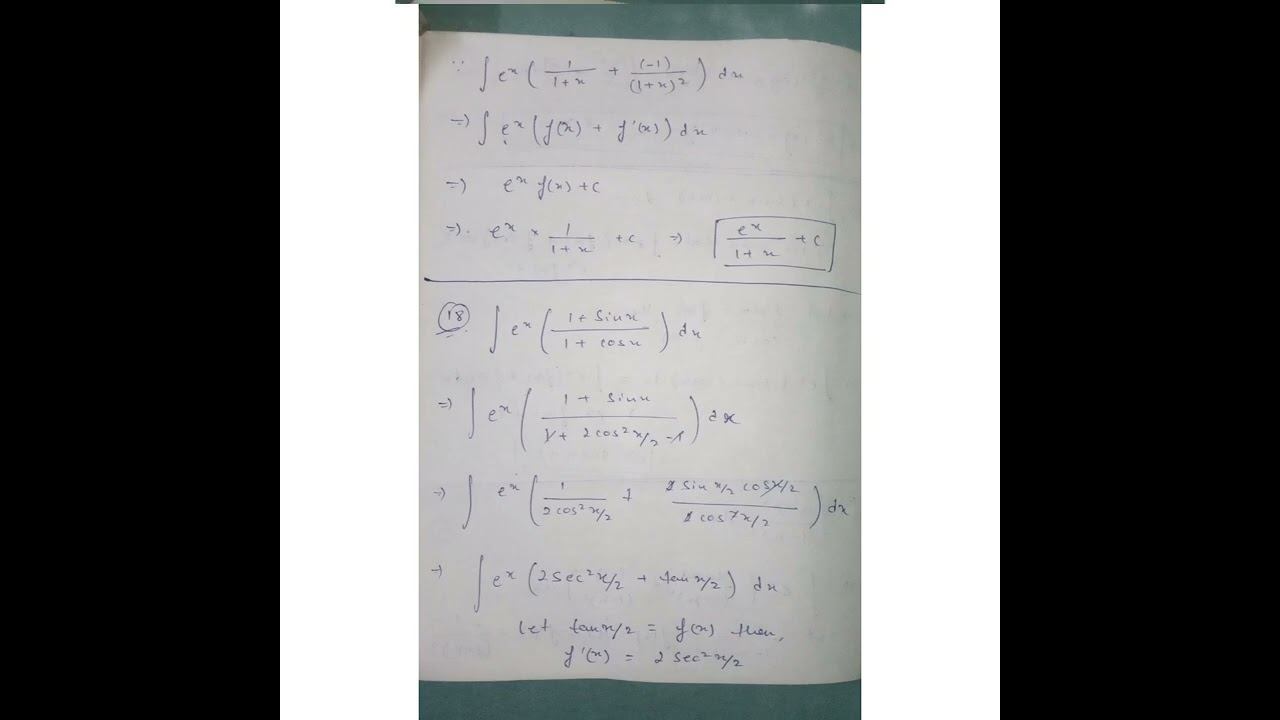 ∵ ∫ e^x ( 1/(1+x) + (-1)/(1+x)^2 ) dx
=> ∫ e^x ( f(x) + f'(x) ) dx
=> e^x f(x) + c
=> e^x × 1/(1+x) + c => e^x/(1+x) + c
(18) ∫ e^x ( (1 + Sinx)/(1 + cosx) ) dx
=> ∫ e^x ( (1 + Sinx)/(1 + 2cos^2 x/2 - 1) ) dx
=> ∫ e^x ( 1/(2cos^2 x/2) + (2 Sin x/2 cos x/2)/(2 cos^2 x/2) ) dx
=> ∫ e^x ( 2 Sec^2 x/2 + tan x/2 ) dx
Let tan x/2 = f(x) then,
f'(x) = 2 Sec^2 x/2